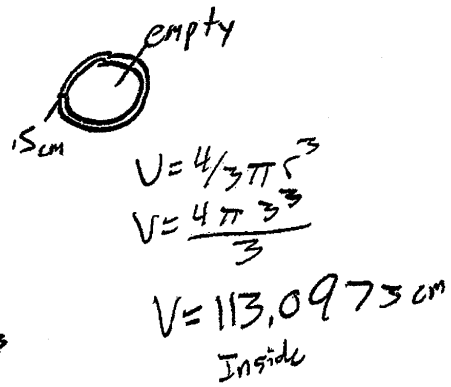 empty
.5cm
V = 4/3 π r³
V = 4 π 3³
3
V = 113.0973 cm
Inside
3